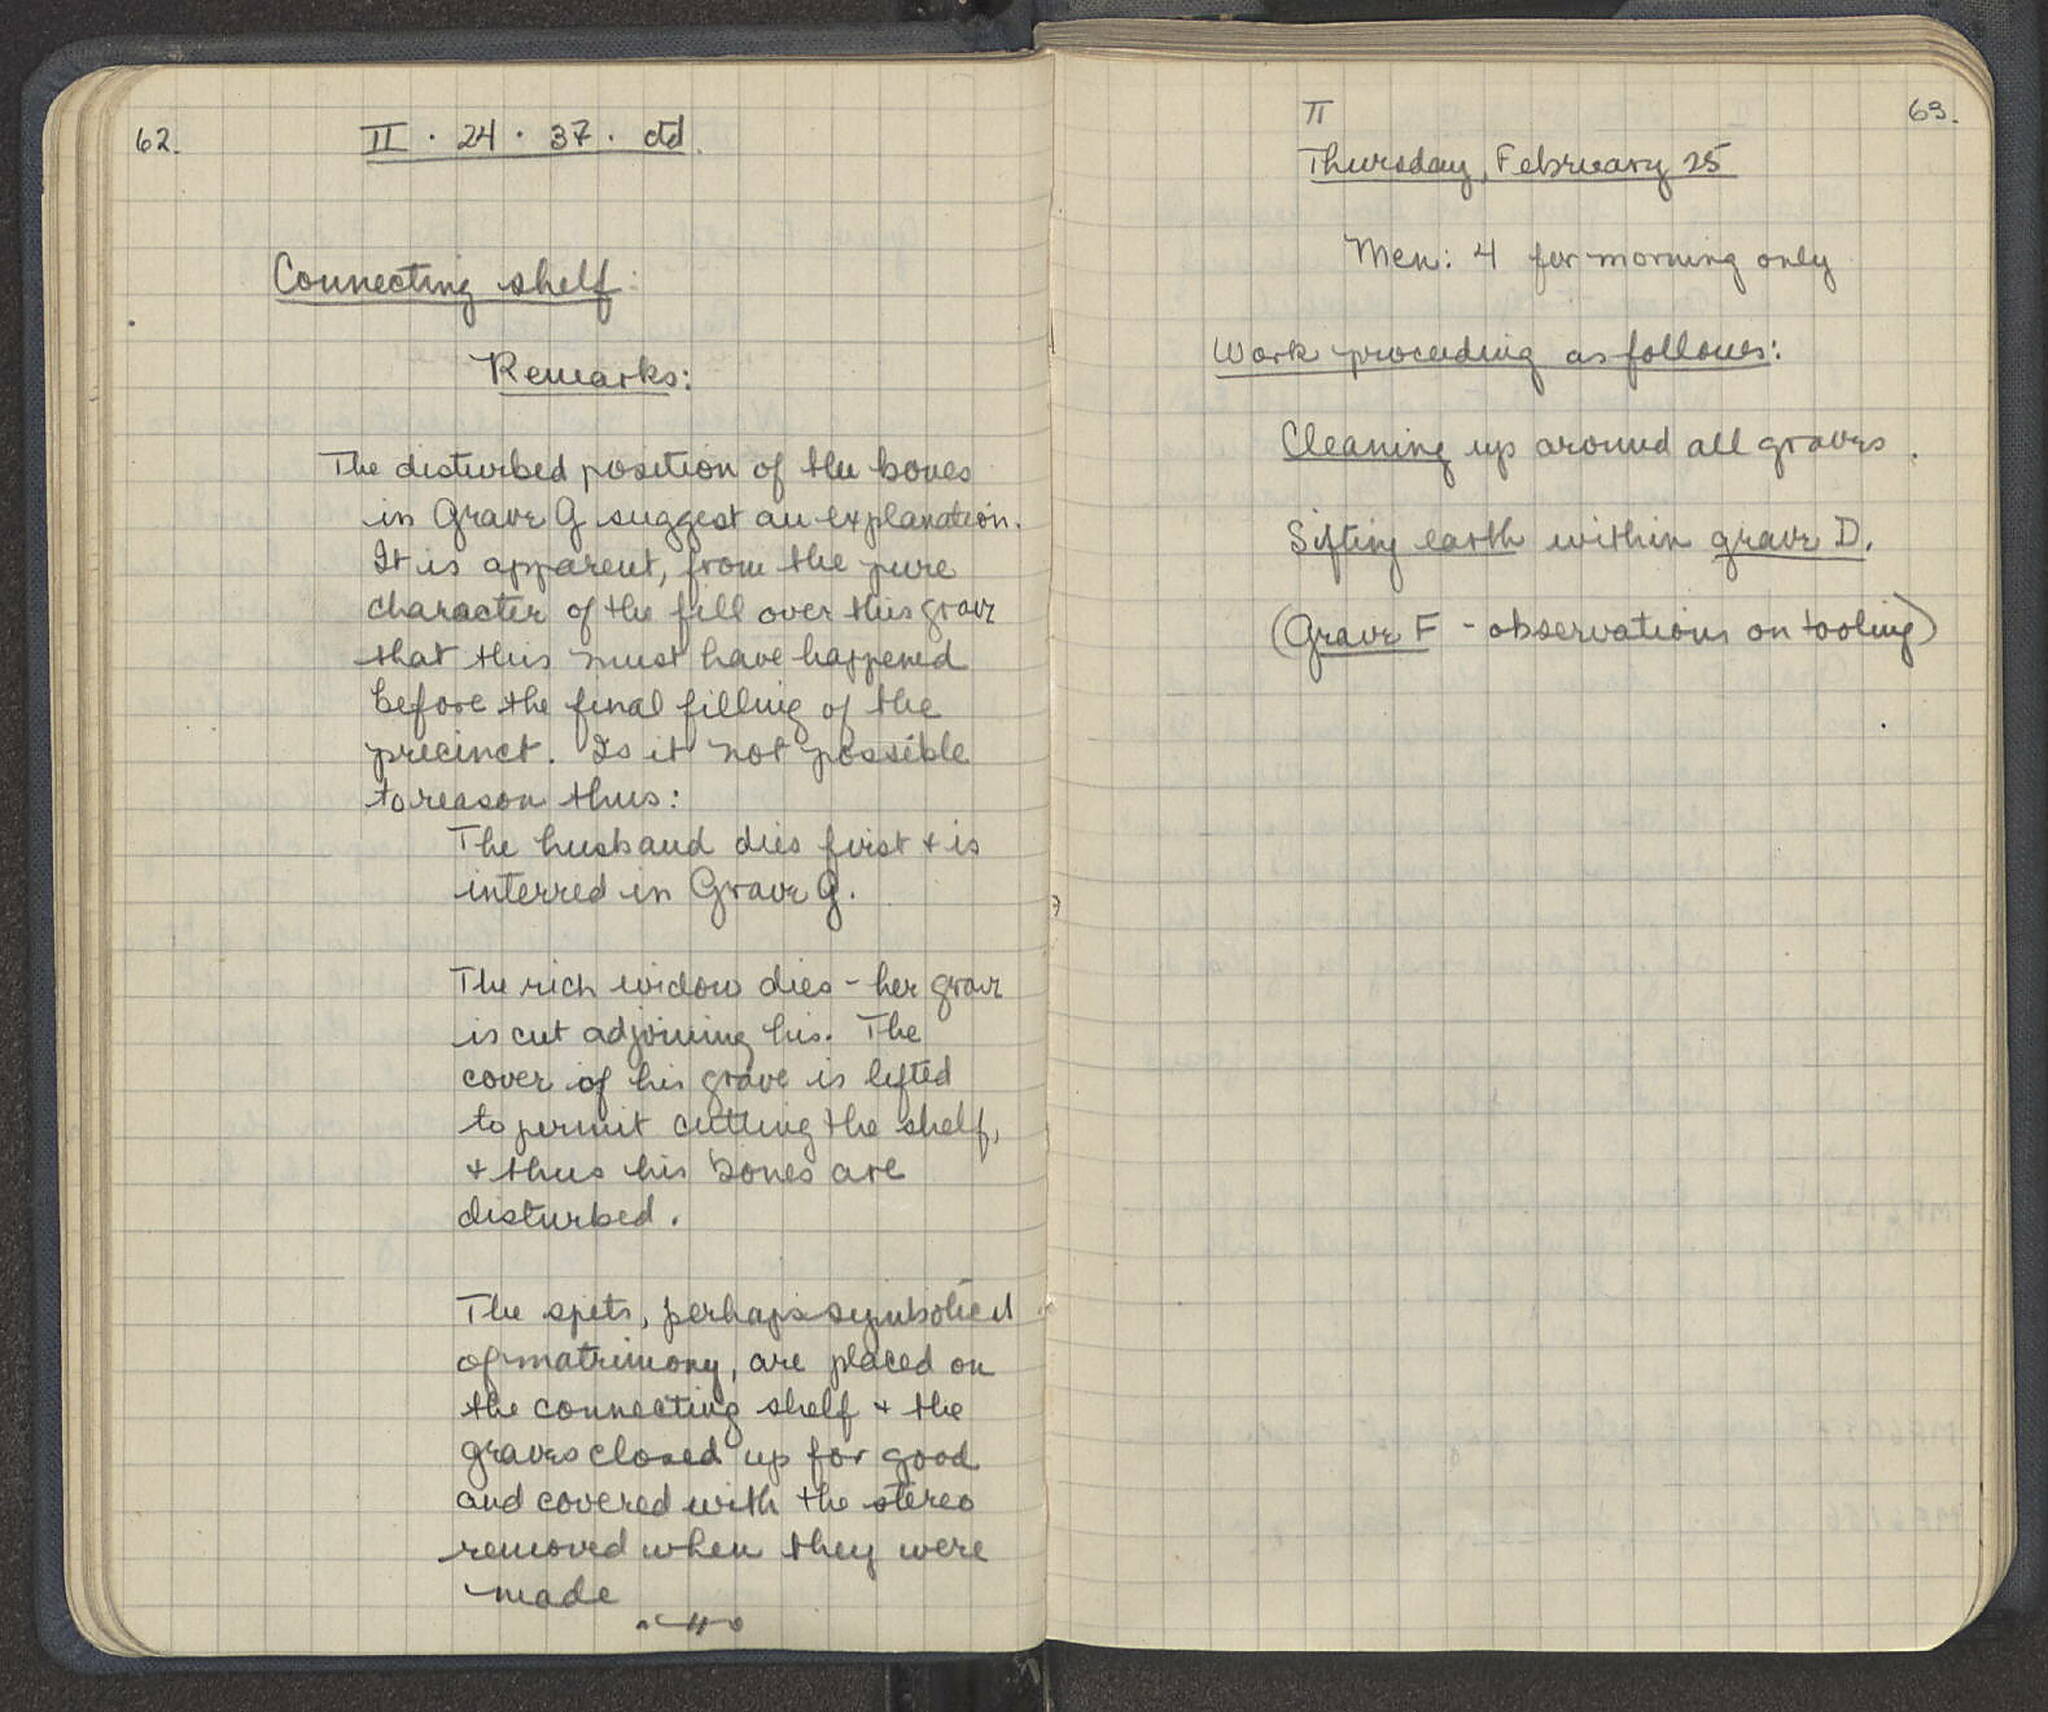 62.
II · 24 · 37 · ctd.
Connecting shelf:
Remarks:
The disturbed position of the bones
in Grave G suggest an explanation.
It is apparent, from the pure
character of the fill over this grave
that this must have happened
before the final filling of the
precinct. Is it not possible
to reason thus:
The husband dies first + is
interred in Grave G.
The rich widow dies - her grave
is cut adjoining his. The
cover of his grave is lifted
to permit cutting the shelf,
+ thus his bones are
disturbed.
The spits, perhaps symbolical
of matrimony, are placed on
the connecting shelf + the
graves closed up for good
and covered with the stereo
removed when they were
made
63.
II
Thursday, February 25
Men: 4 for morning only
Work proceeding as follows:
Cleaning up around all graves.
Sifting earth within grave D.
(Grave F - observations on tooling)